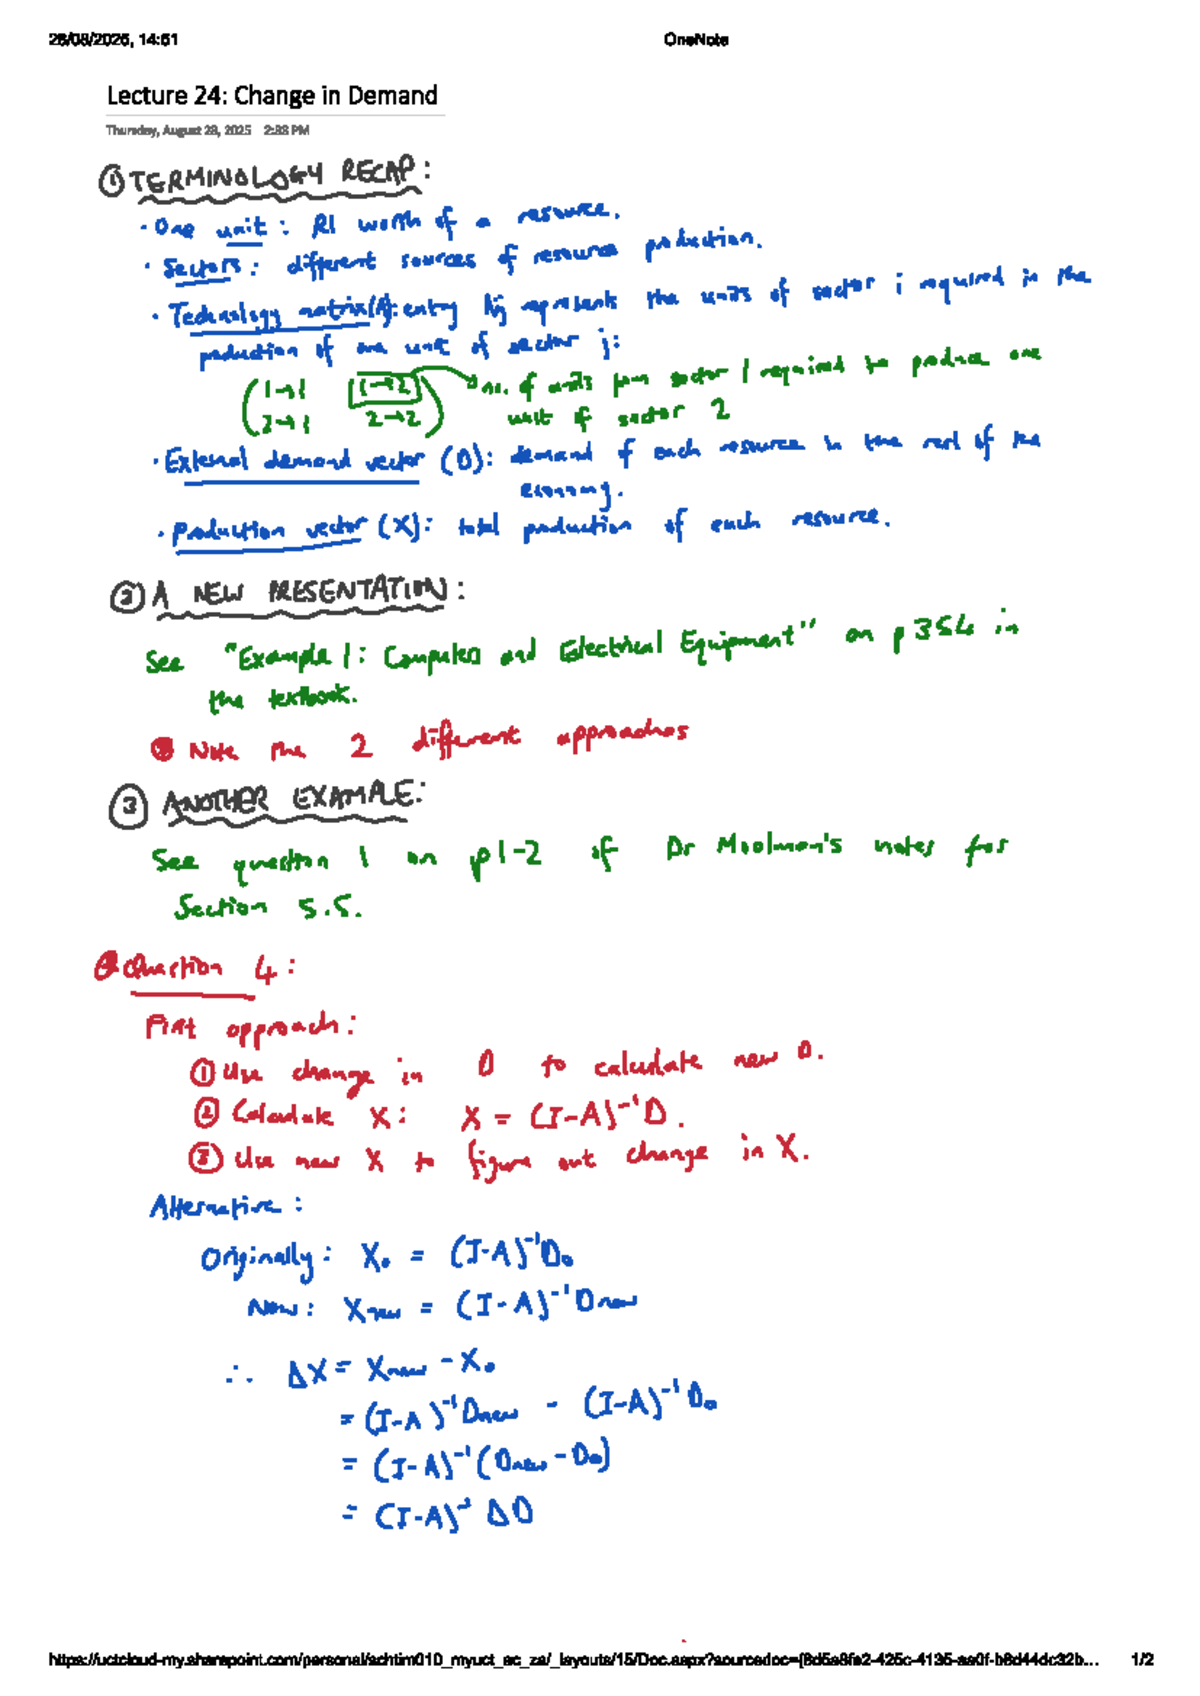 28/08/2025, 14:51
OneNote
Lecture 24: Change in Demand
Thursday, August 28, 2025 2:38 PM
① TERMINOLOGY RECAP:
· One unit: R1 worth of a resource.
· Sectors: different sources of resource production.
· Technology matrix (A): entry Aij represents the units of sector i required in the
production of one unit of sector j:
(1→1 1→2) no. of units from sector 1 required to produce one
(2→1 2→2) unit of sector 2
· External demand vector (D): demand of each resource in the rest of the
economy.
· Production vector (X): total production of each resource.
② A NEW PRESENTATION:
See "Example 1: Computers and Electrical Equipment" on p354 in
the textbook.
Note the 2 different approaches
③ ANOTHER EXAMPLE:
See question 1 on p1-2 of Dr Moolman's notes for
Section 5.5.
Question 4:
First approach:
① Use change in D to calculate new D.
② Calculate X: X = (I-A)⁻¹D.
③ Use new X to figure out change in X.
Alternative:
Originally: X₀ = (I-A)⁻¹D₀
New: Xnew = (I-A)⁻¹Dnew
∴ ΔX = Xnew - X₀
= (I-A)⁻¹Dnew - (I-A)⁻¹D₀
= (I-A)⁻¹(Dnew - D₀)
= (I-A)⁻¹ ΔD
1/2